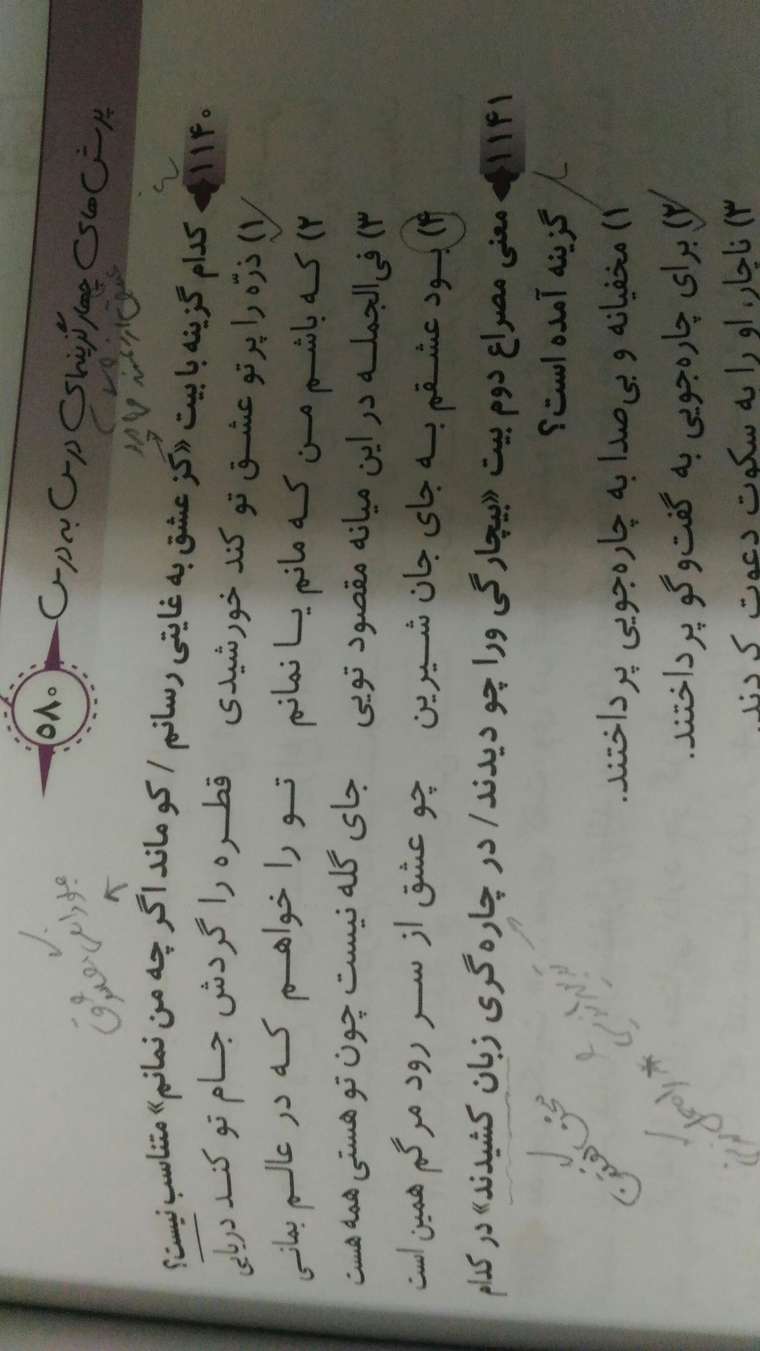 ۵۸۰ پرسش های چهار گزینه‌ای درس به درس
۱۱۴۰ کدام گزینه با بیت «کز عشق به غایتی رسانم / کو ماند اگر چه من نمانم» متناسب نیست؟
۱) ذرّه را پرتو عشق تو کند خورشیدی قطره را گردش جام تو کند دریایی
۲) که باشم من که مانم یا نمانم تو را خواهم که در عالم بمانی
۳) فی‌الجمله در این میانه مقصود تویی جای گله نیست چون تو هستی همه هست
۴) بود عشقم به جای جان شیرین چو عشق از سر رود مرگم همین است
۱۱۴۱ معنی مصراع دوم بیت «بیچارگی ورا چو دیدند / در چاره گری زبان کشیدند» در کدام
گزینه آمده است؟
۱) مخفیانه و بی‌صدا به چاره‌جویی پرداختند.
۲) برای چاره‌جویی به گفت‌وگو پرداختند.
۳) ناچار، او را به سکوت دعوت کردند.